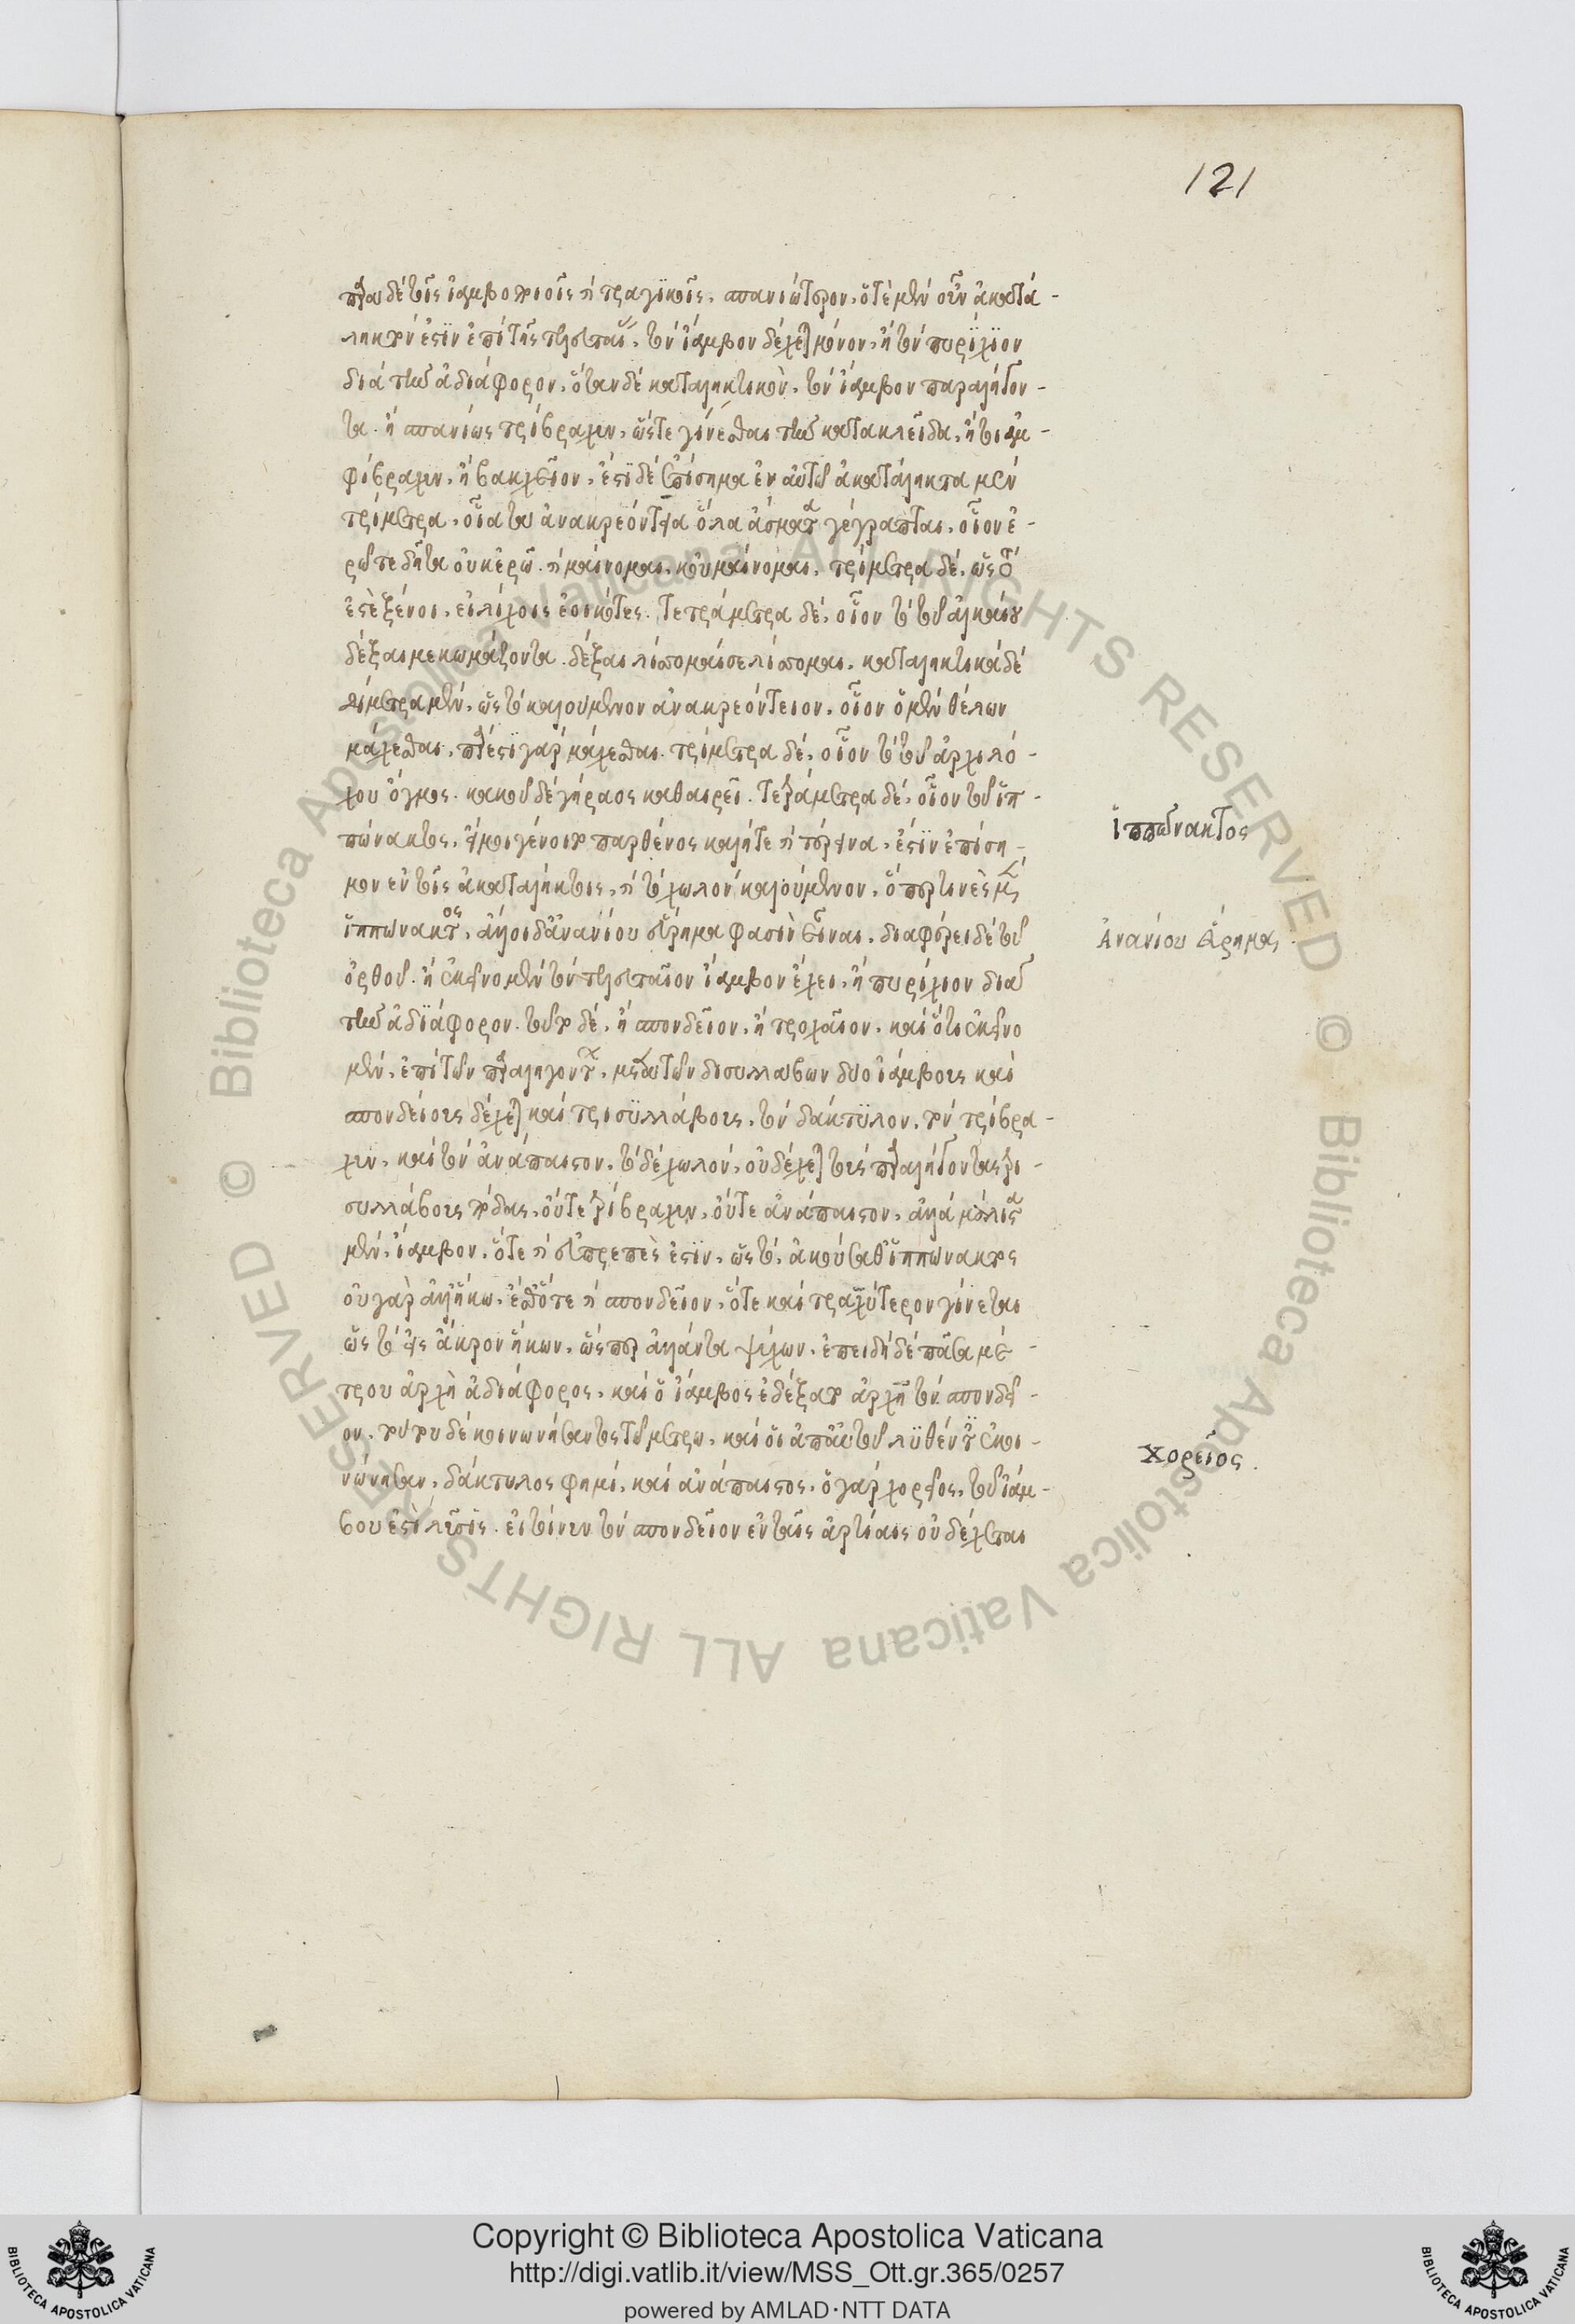 121
παρὰ δὲ τοῖς ἰαμβοποιοῖς ἢ τραγικοῖς, σπανιώτερον. ὅτε μὲν οὖν ἀκατά-
ληκτόν ἐστιν ἐπὶ τῆς τελευταίας, τὸν ἴαμβον δέχεται μόνον, ἢ τὸν πυρίχιον
διὰ τὴν ἀδιάφορον. ὅταν δὲ καταληκτικὸν, τὸν ἴαμβον παραλήγον-
τα. ἢ σπανίως τρίβραχυν, ὥστε γίνεσθαι τὴν κατακλεῖδα, ἤτοι ἀμ-
φίβραχυν, ἢ βακχεῖον. ἔστι δὲ ἐπίσημα ἐν αὐτῷ ἀκατάληκτα μὲν
τρίμετρα, οἷα τὰ ἀνακρεόντεια ὅλα ᾄσματα γέγραπται, οἷον ἐ-
ρῶ τε δῆτα οὐκ ἐρῶ. ἢ μαίνομαι, κοὐ μαίνομαι. τρίμετρα δέ, ὡς τὸ
ἐστὲ ξένοι, ειλίχοις ἐοικότες. τετράμετρα δέ, οἷον τὸ τοῦ ἀλκαίου
δέξαι με κωμάζοντα. δέξαι λίσσομαί σε λίσσομαι. καταληκτικὰ δὲ
δίμετρα μὲν, ὡς τὸ καλούμενον ἀνακρεόντειον, οἷον ὁ μὲν θέλων
μάχεσθαι, πάρεστι γὰρ μάχεσθαι. τρίμετρα δέ, οἷον τὸ τοῦ ἀρχιλό-
χου ὄγμος. κακοῦ δὲ γήραος καθαιρεῖ. τετράμετρα δέ, οἷον τοῦ ἱπ-
πώνακτος, εἴ μοι γένοιτο παρθένος καλή τε ἢ τέρεινα. ἔστιν ἐπίση-
μον ἐν τοῖς ἀκαταλήκτοις, ἢ τὸ χωλὸν καλούμενον, ὅπερ τινὲς μὲν
ἱππώνακτος, ἄλλοι δ' ἀνανίου εὕρημα φασὶν εἶναι. διαφέρει δὲ τοῦ
ὀρθοῦ. ἢ ἐκεῖνο μὲν τὸν τελευταῖον ἴαμβον ἔχει, ἢ πυρίχιον διὰ
τὴν ἀδιάφορον. τοῦτο δέ, ἢ σπονδεῖον, ἢ τροχαῖον. καὶ ὅτι ἐκεῖνο
μὲν, ἐπὶ τῶν παραληγόντων, μετὰ τῶν δισυλλάβων δύο ἰάμβους καὶ
σπονδείους δέχεται καὶ τρισυλλάβους, τὸν δάκτυλον, τὸν τρίβρα-
χυν, καὶ τὸν ἀνάπαιστον. τὸ δὲ χωλὸν, οὐ δέχεται τοὺς παραλήγοντας τρι-
συλλάβους πόδας, οὔτε τρίβραχυν, οὔτε ἀνάπαιστον, ἀλλὰ μάλιστα
μὲν, ἴαμβον, ὅτε ἢ εὐπρεπὲς ἐστιν, ὡς τὸ, ἀκούσαθ' ἱππώνακτος
οὐ γὰρ ἀλλ' ἥκω. ἔσθ' ὅτε ἢ σπονδεῖον, ὅτε καὶ τραχύτερον γίνεται
ὡς τὸ εἰς ἄκρον ἥκων, ὥσπερ ἀλλάντα ψύχων. ἐπειδὴ δὲ πᾶσα μέ-
τρου ἀρχὴ ἀδιάφορος, καὶ ὁ ἴαμβος ἐδέξατο ἀρχὴν τὸν σπονδεῖ-
ον. τούτου δὲ κοινωνήσαντος τῷ μέτρῳ, καὶ οἱ ἀπ' αὐτοῦ λυθέντες ἐκοι-
νώνησαν, δάκτυλος φημὶ, καὶ ἀνάπαιστος. ὁ γὰρ χορεῖος, τοῦ ἰάμ-
βου ἐστὶ λύσις. εἰ τοίνυν τὸν σπονδεῖον ἐν ταῖς ἀρτίαις οὐ δέχεται
Ἱππώνακτος
Ἀνανίου εὕρημα
χορεῖος.
Copyright © Biblioteca Apostolica Vaticana
http://digi.vatlib.it/view/MSS_Ott.gr.365/0257
powered by AMLAD·NTT DATA